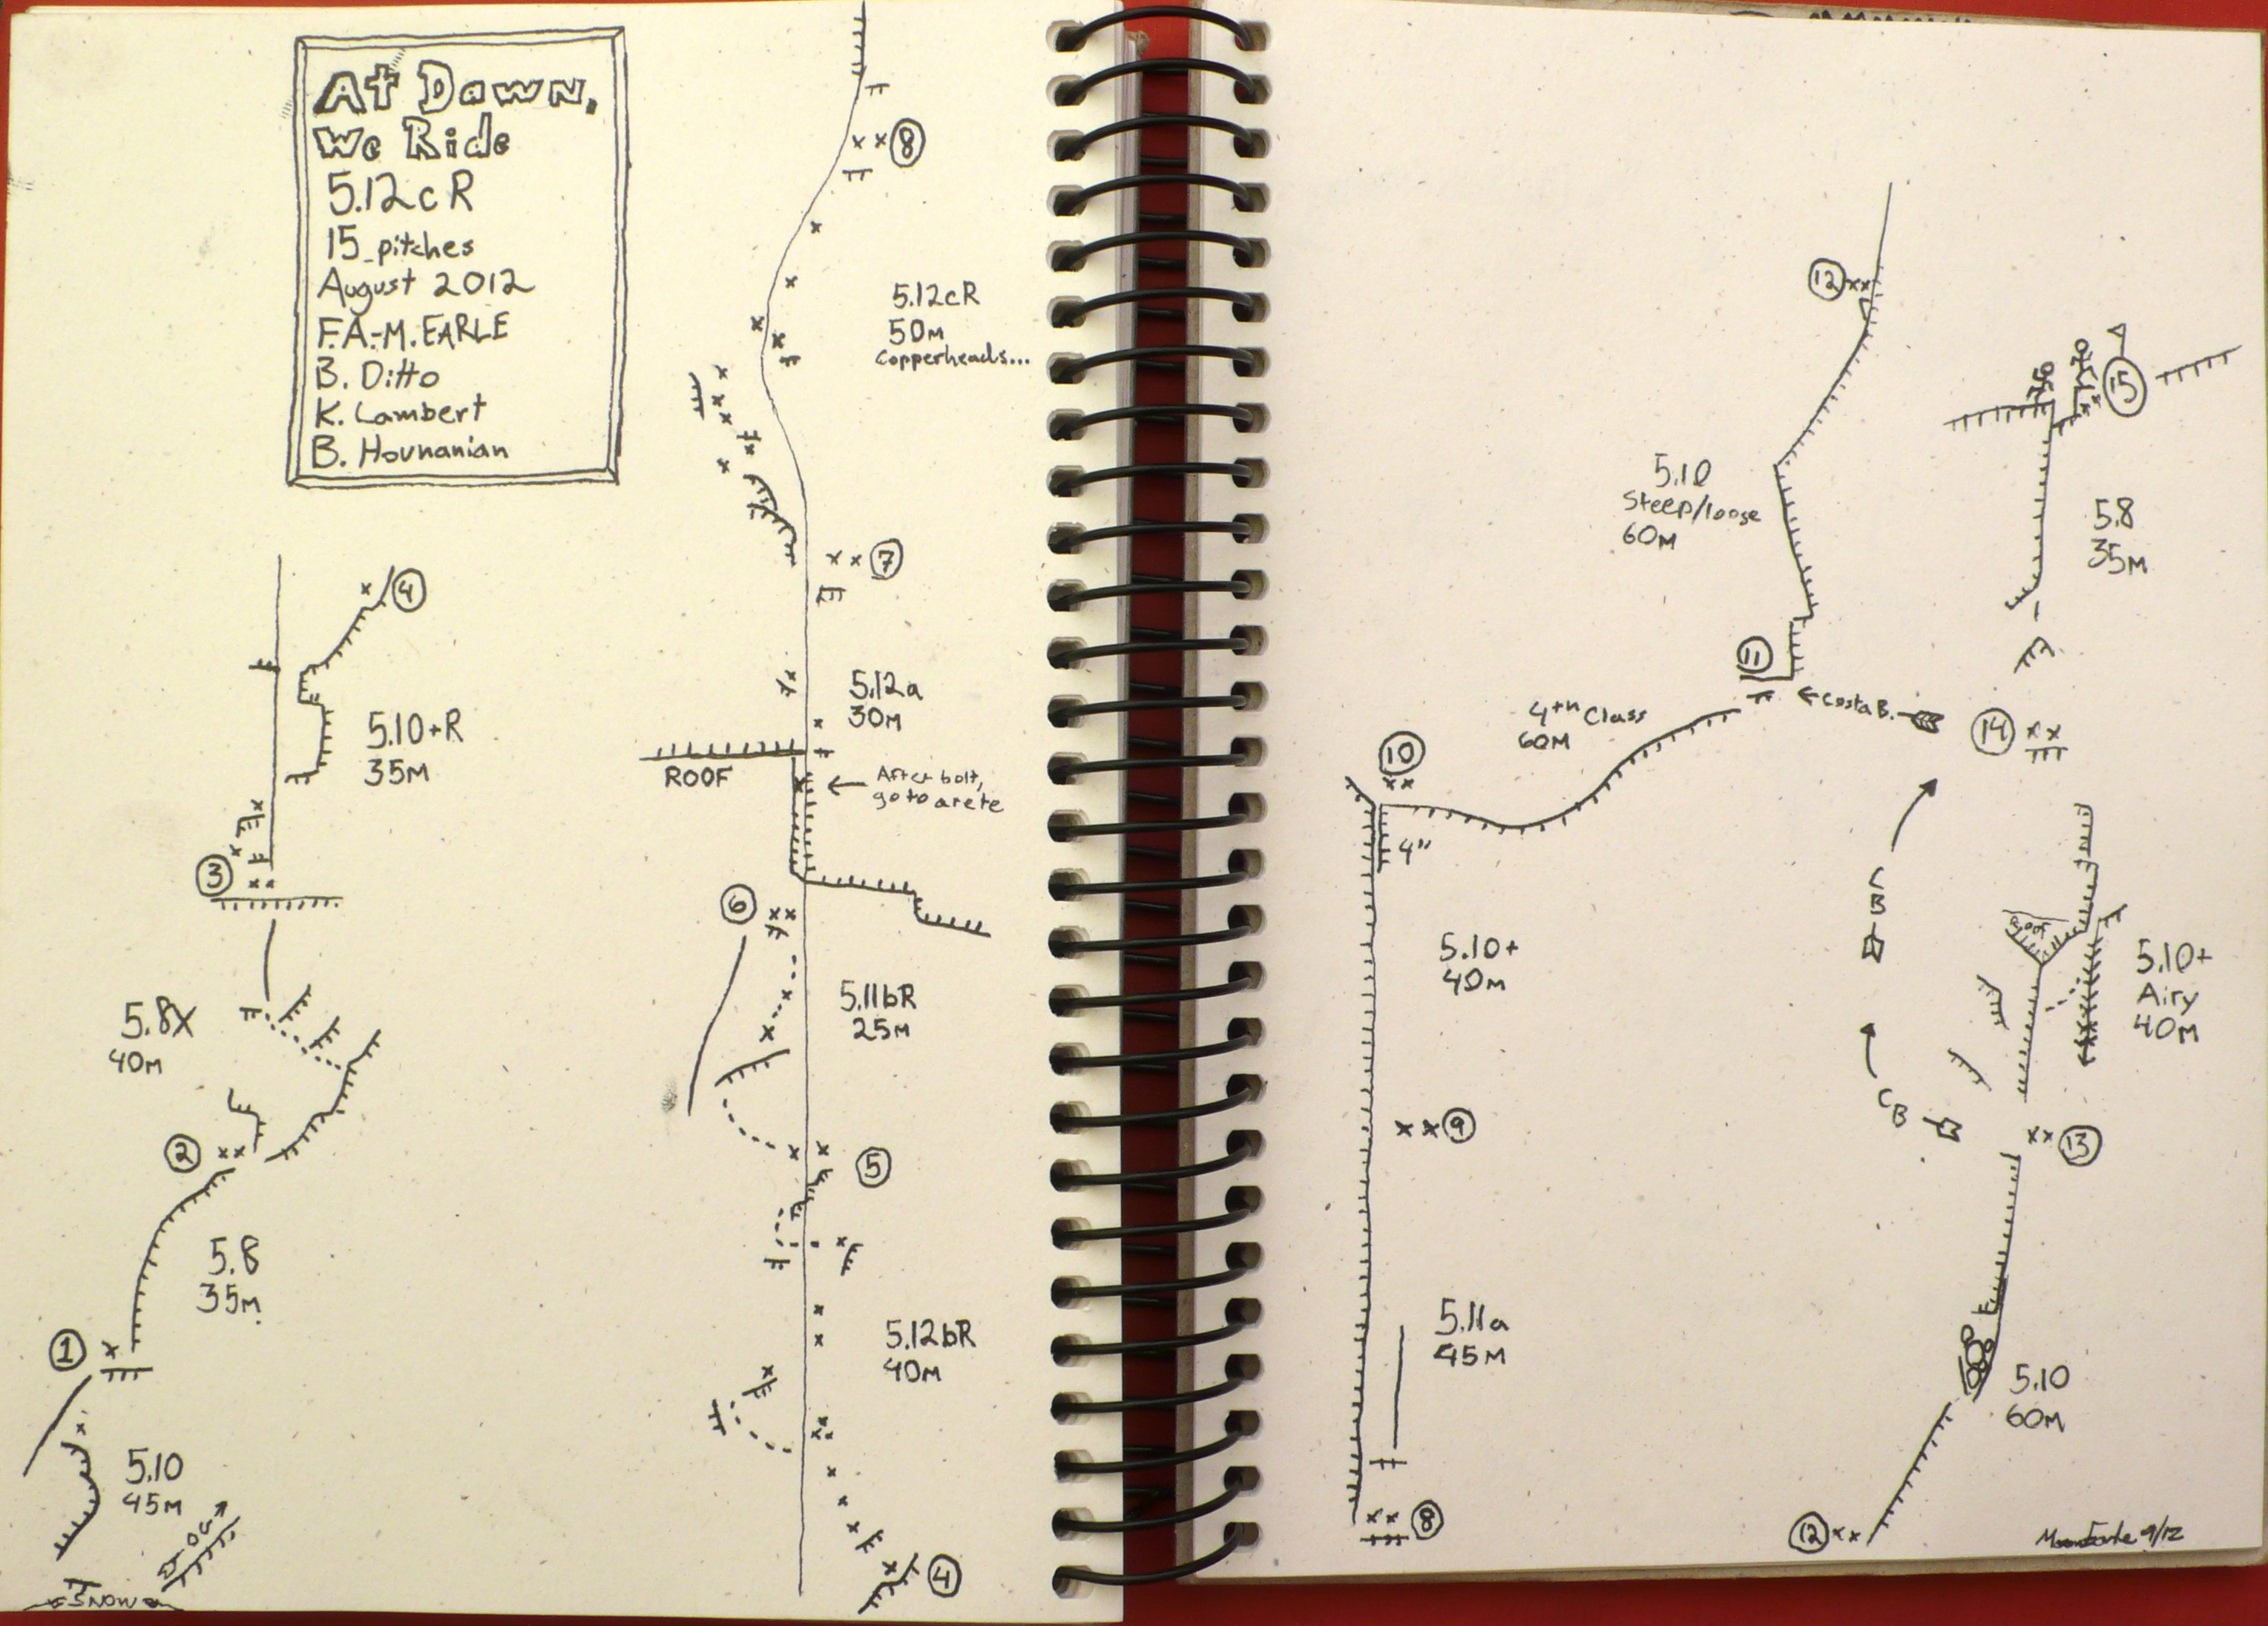 At Dawn,
We Ride
5.12c R
15 pitches
August 2012
F.A.-M. EARLE
B. Ditto
K. Lambert
B. Hovnanian
4
5.10+R
35M
3
5.8X
40M
2
5.8
35M.
1
5.10
45M
OG
SNOW
8
5.12cR
50M
Copperheads...
7
5.12a
30M
ROOF
After bolt,
go to arete
6
5.11bR
25M
5
5.12bR
40M
4
12
5.10
Steep/loose
60M
11
← Costa B.
4th Class
60M
10
4"
5.10+
40M
9
5.11a
45M
8
15
5.8
35M
14
CB
Roof
5.10+
Airy
40M
CB
13
5.10
60M
12
9/12